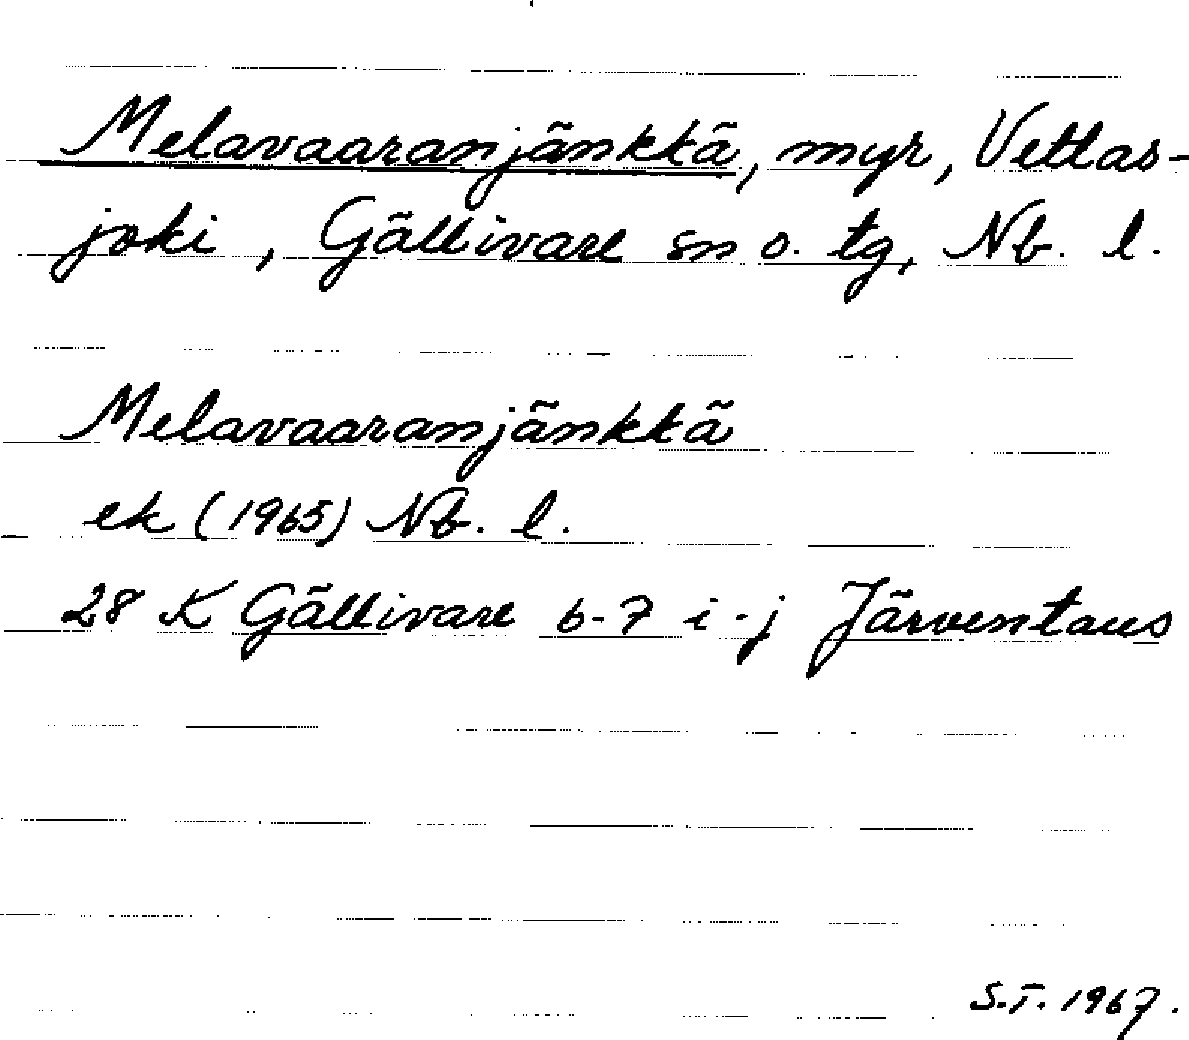 Melavaaranjänkkä, myr, Vettas-
joki, Gällivare sn o. tg, Nb. l.
Melavaaranjänkkä
ek (1965) Nb. l.
28 K Gällivare 6-7 i-j Järventaus
S.T. 1967.